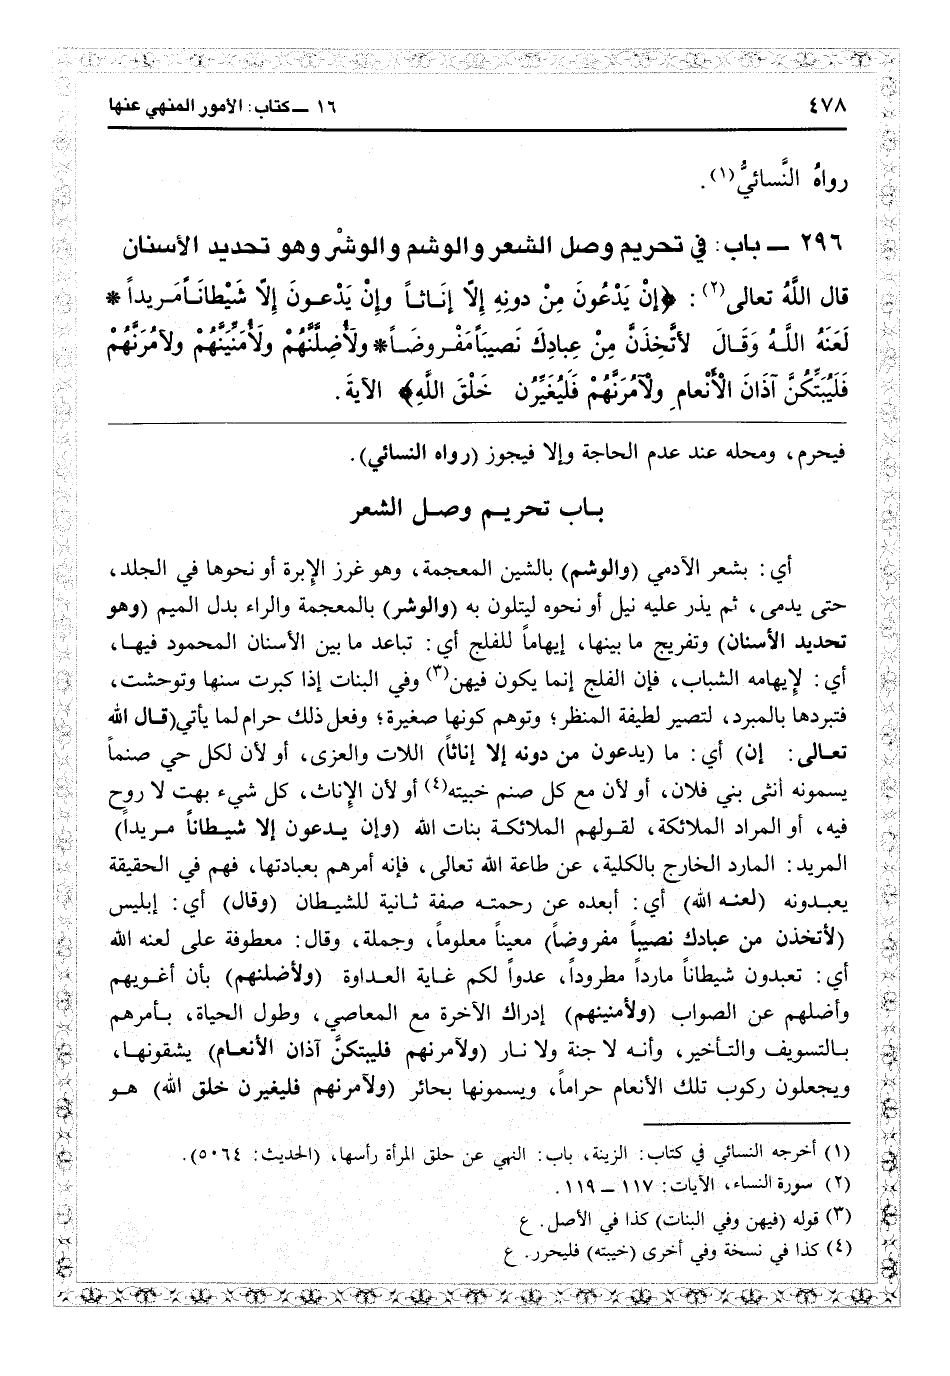 ٤٧٨
١٦ ــ كتاب: الأمور المنهي عنها
رواهُ النَّسائيُّ(١).
٢٩٦ ــ باب: في تحريم وصل الشعر والوشم والوشْر وهو تحديد الأسنان
قال اللَّهُ تعالى(٢): ﴿إنْ يَدْعُونَ مِنْ دونِهِ إلّا إنَاثاً وإنْ يَدْعونَ إلّا شَيْطانَاً مَريداً *
لَعَنَهُ اللَّهُ وَقَالَ لأتَّخِذَنَّ مِنْ عِبادِكَ نَصيباً مَفْروضَاً * ولَأُضِلَّنَّهُمْ ولَأُمَنِّيَنَّهُمْ ولآمُرَنَّهُمْ
فَلَيُبَتِّكُنَّ آذَانَ الْأَنْعامِ ولَآمُرَنَّهُمْ فَلَيُغَيِّرُن خَلْقَ اللَّهِ﴾ الآيةَ.
فيحرم، ومحله عند عدم الحاجة وإلا فيجوز (رواه النسائي).
باب تحريم وصل الشعر
أي: بشعر الآدمي (والوشم) بالشين المعجمة، وهو غرز الإبرة أو نحوها في الجلد،
حتى يدمى، ثم يذر عليه نيل أو نحوه ليتلون به (والوشر) بالمعجمة والراء بدل الميم (وهو
تحديد الأسنان) وتفريج ما بينها، إيهاماً للفلج أي: تباعد ما بين الأسنان المحمود فيها،
أي: لإيهامه الشباب، فإن الفلج إنما يكون فيهن(٣) وفي البنات إذا كبرت سنها وتوحشت،
فتبردها بالمبرد، لتصير لطيفة المنظر؛ وتوهم كونها صغيرة؛ وفعل ذلك حرام لما يأتي (قال الله
تعالى: إن) أي: ما (يدعون من دونه إلا إناثاً) اللات والعزى، أو لأن لكل حي صنماً
يسمونه أنثى بني فلان، أو لأن مع كل صنم خبيته(٤) أو لأن الإناث، كل شيء بهت لا روح
فيه، أو المراد الملائكة، لقولهم الملائكة بنات الله (وإن يدعون إلا شيطاناً مريداً)
المريد: المارد الخارج بالكلية، عن طاعة الله تعالى، فإنه أمرهم بعبادتها، فهم في الحقيقة
يعبدونه (لعنه الله) أي: أبعده عن رحمته صفة ثانية للشيطان (وقال) أي: إبليس
(لأتخذن من عبادك نصيباً مفروضاً) معيناً معلوماً، وجملة، وقال: معطوفة على لعنه الله
أي: تعبدون شيطاناً مارداً مطروداً، عدواً لكم غاية العداوة (ولأضلنهم) بأن أغويهم
وأضلهم عن الصواب (ولأمنينهم) إدراك الآخرة مع المعاصي، وطول الحياة، بأمرهم
بالتسويف والتأخير، وأنه لا جنة ولا نار (ولآمرنهم فليبتكنَّ آذان الأنعام) يشقونها،
ويجعلون ركوب تلك الأنعام حراماً، ويسمونها بحائر (ولآمرنهم فليغيرن خلق الله) هو
(١) أخرجه النسائي في كتاب: الزينة، باب: النهي عن حلق المرأة رأسها، (الحديث: ٥٠٦٤).
(٢) سورة النساء، الآيات: ١١٧ ــ ١١٩.
(٣) قوله (فيهن وفي البنات) كذا في الأصل. ع
(٤) كذا في نسخة وفي أخرى (خيبته) فليحرر. ع